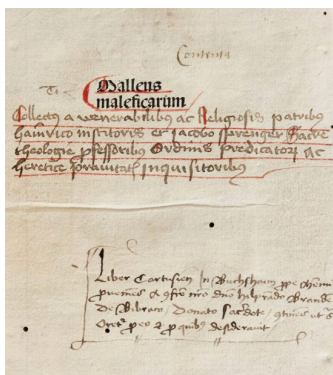 Contenta
Ti
Malleus
maleficarum
Collectus a venerabilibus ac Religiosis patribus
hainrico institoris et Jacobo sprenger Sacre
theologie pfessoribus Ordinis predicatorum ac
heretice pravitatis inquisitoribus
Liber Cartusien In Buchshaim prope
proveniens a dno hilprando Brande
De Bibraco, Donato sacdote,
pro eo et pro quibus desideravit